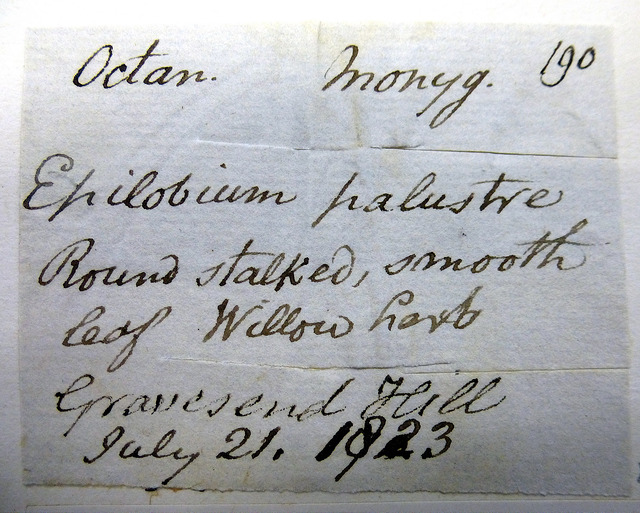 Octan. Monyg. 190
Epilobium palustre
Round stalked, smooth
leaf Willow herb
Gravesend Hill
July 21. 1823